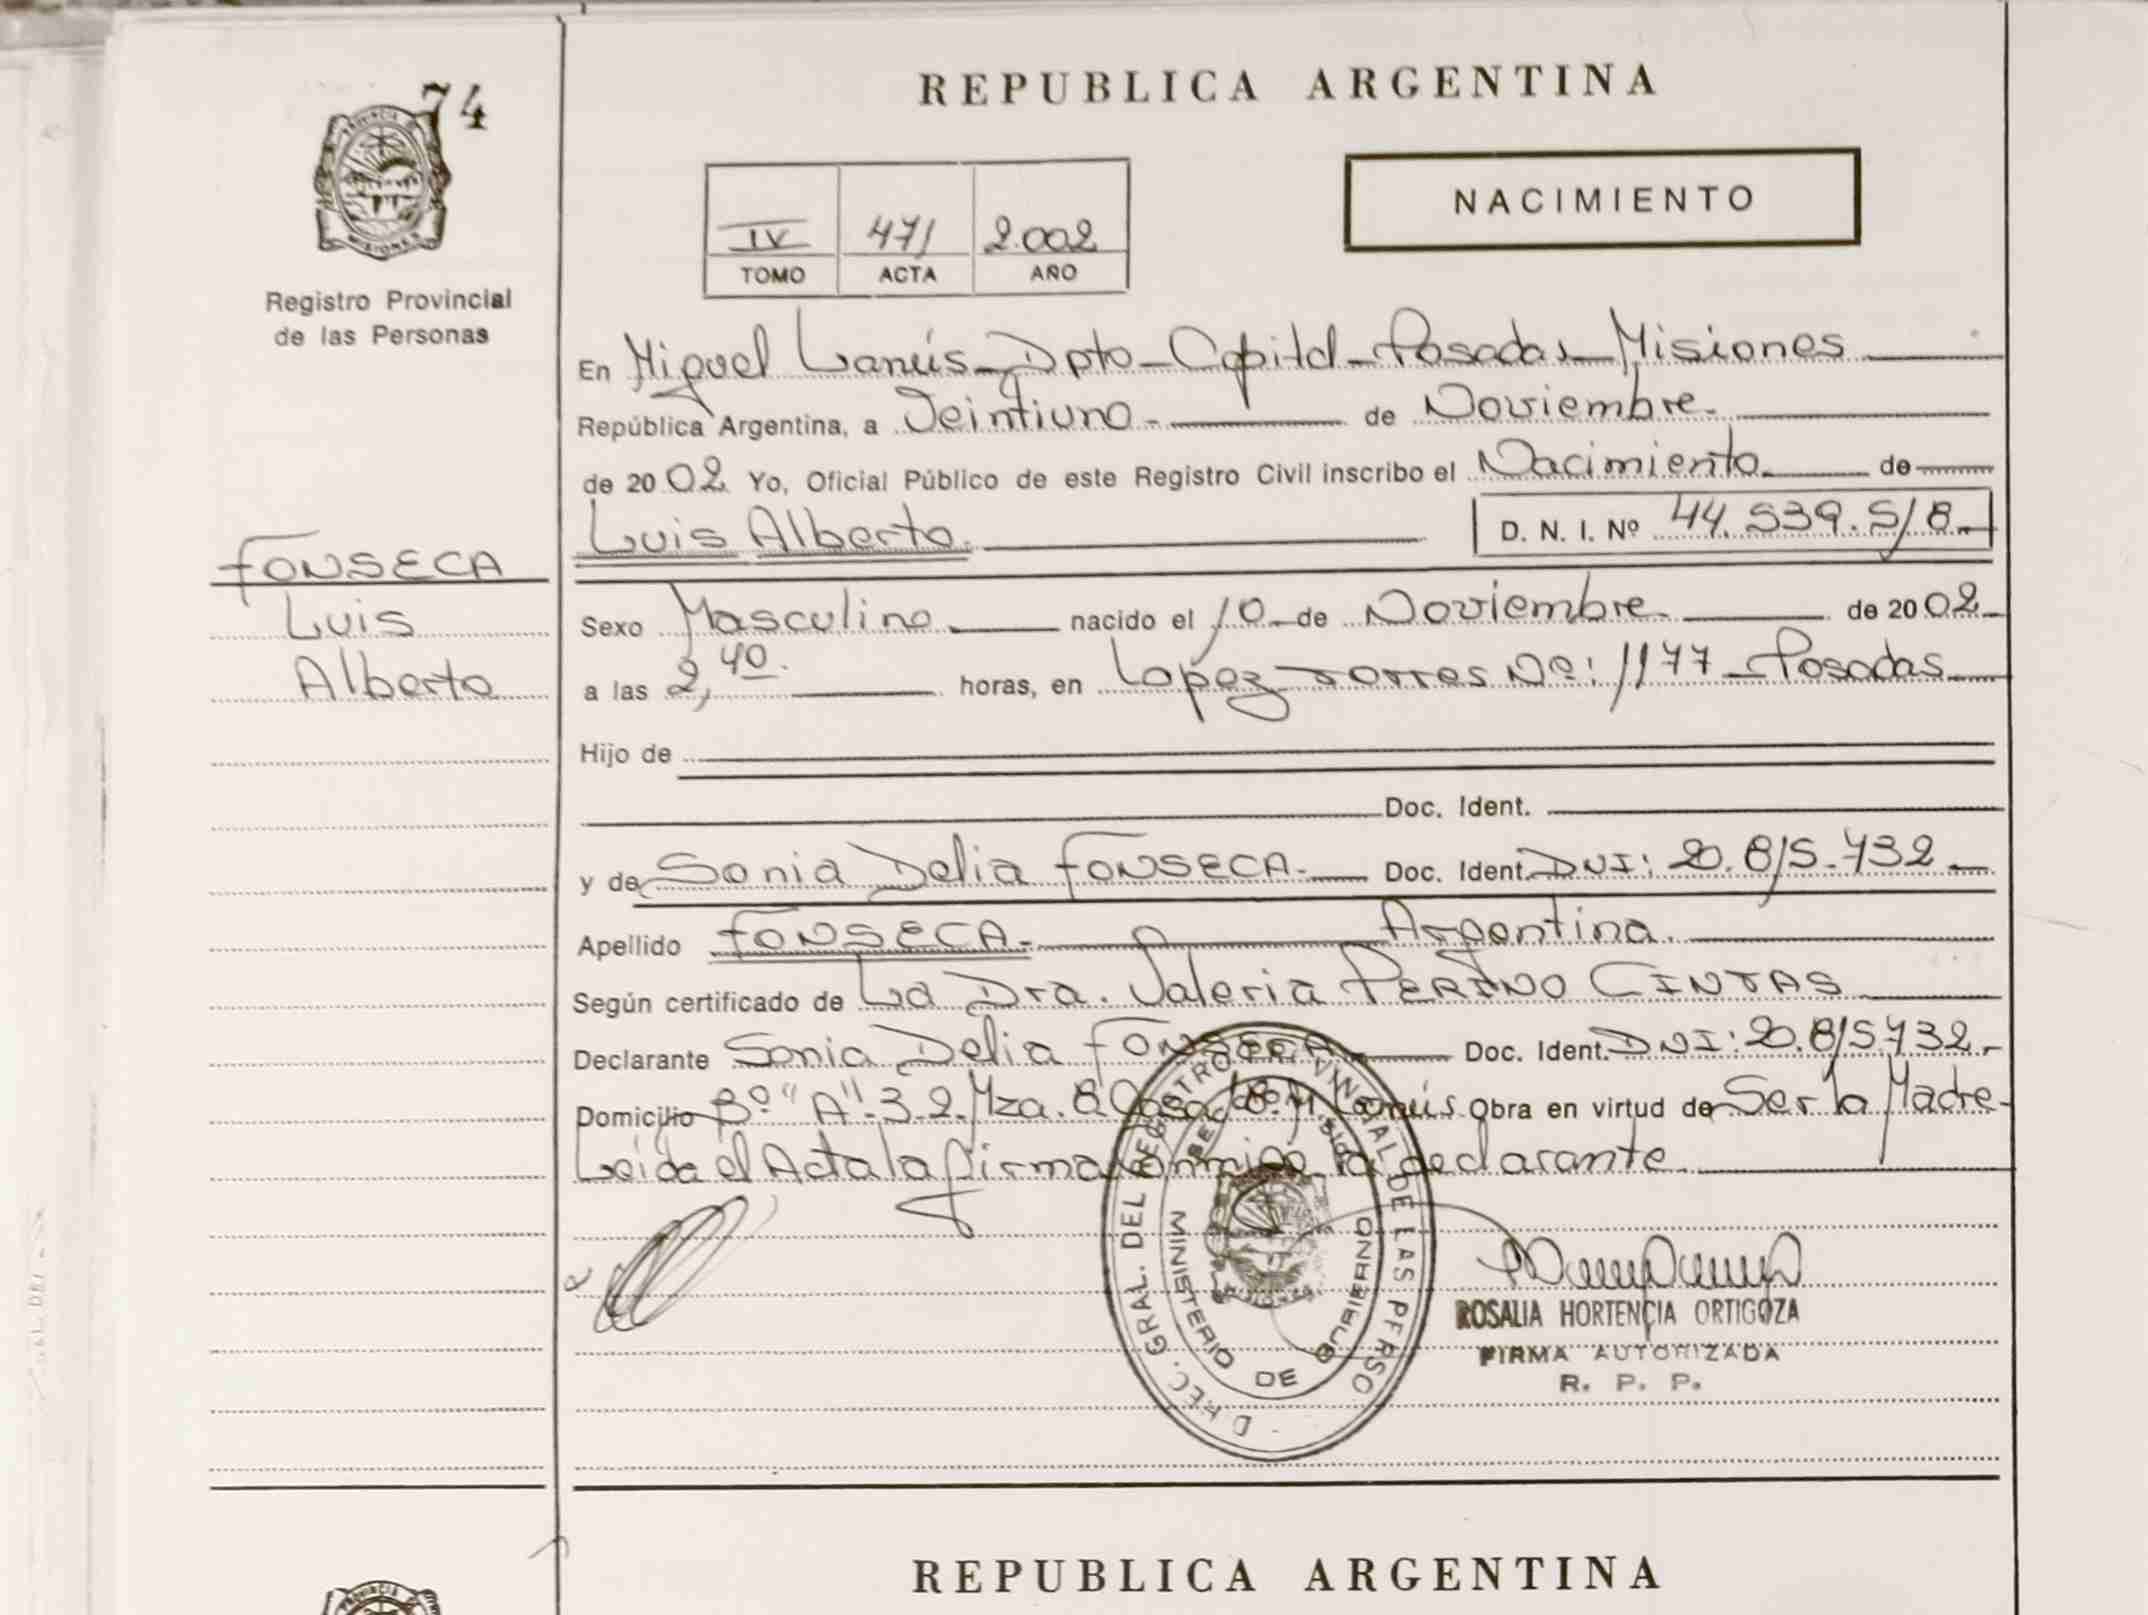 74
REPUBLICA ARGENTINA
NACIMIENTO
IV 471 2.002
TOMO ACTA AÑO
PROVINCIA DE
MISIONES
Registro Provincial
de las Personas
En Miguel Lanús - Dpto - Capital - Posadas - Misiones
República Argentina, a Veintiuno - de Noviembre -
de 2002 Yo, Oficial Público de este Registro Civil inscribo el Nacimiento de
Luis Alberto. D. N. I. Nº 44.539.518.-
FONSECA
Luis
Alberto
Sexo Masculino nacido el 10 de Noviembre - de 2002
a las 2,40. horas, en Lopez Torres Nº: 1177 - Posadas
Hijo de
Doc. Ident.
y de Sonia Delia FONSECA.- Doc. Ident. DNI: 20.815.732 -
Apellido FONSECA - Argentina.
Según certificado de La Dra. Valeria PERINO CINTAS
Declarante Sonia Delia FONSECA Doc. Ident. DNI: 20.815.732.-
Domicilio Bº "A" 3.2. Mza. 8. Casa 18. M. Lanús Obra en virtud de Ser la Madre-
Leída el Acta la firma conmigo la declarante
DIREC. GRAL. DEL REGISTRO PROVINCIAL DE LAS PERSO
MINISTERIO DE GOBIERNO
ROSALIA HORTENCIA ORTIGOZA
FIRMA AUTORIZADA
R. P. P.
REPUBLICA ARGENTINA
PROVINCIA